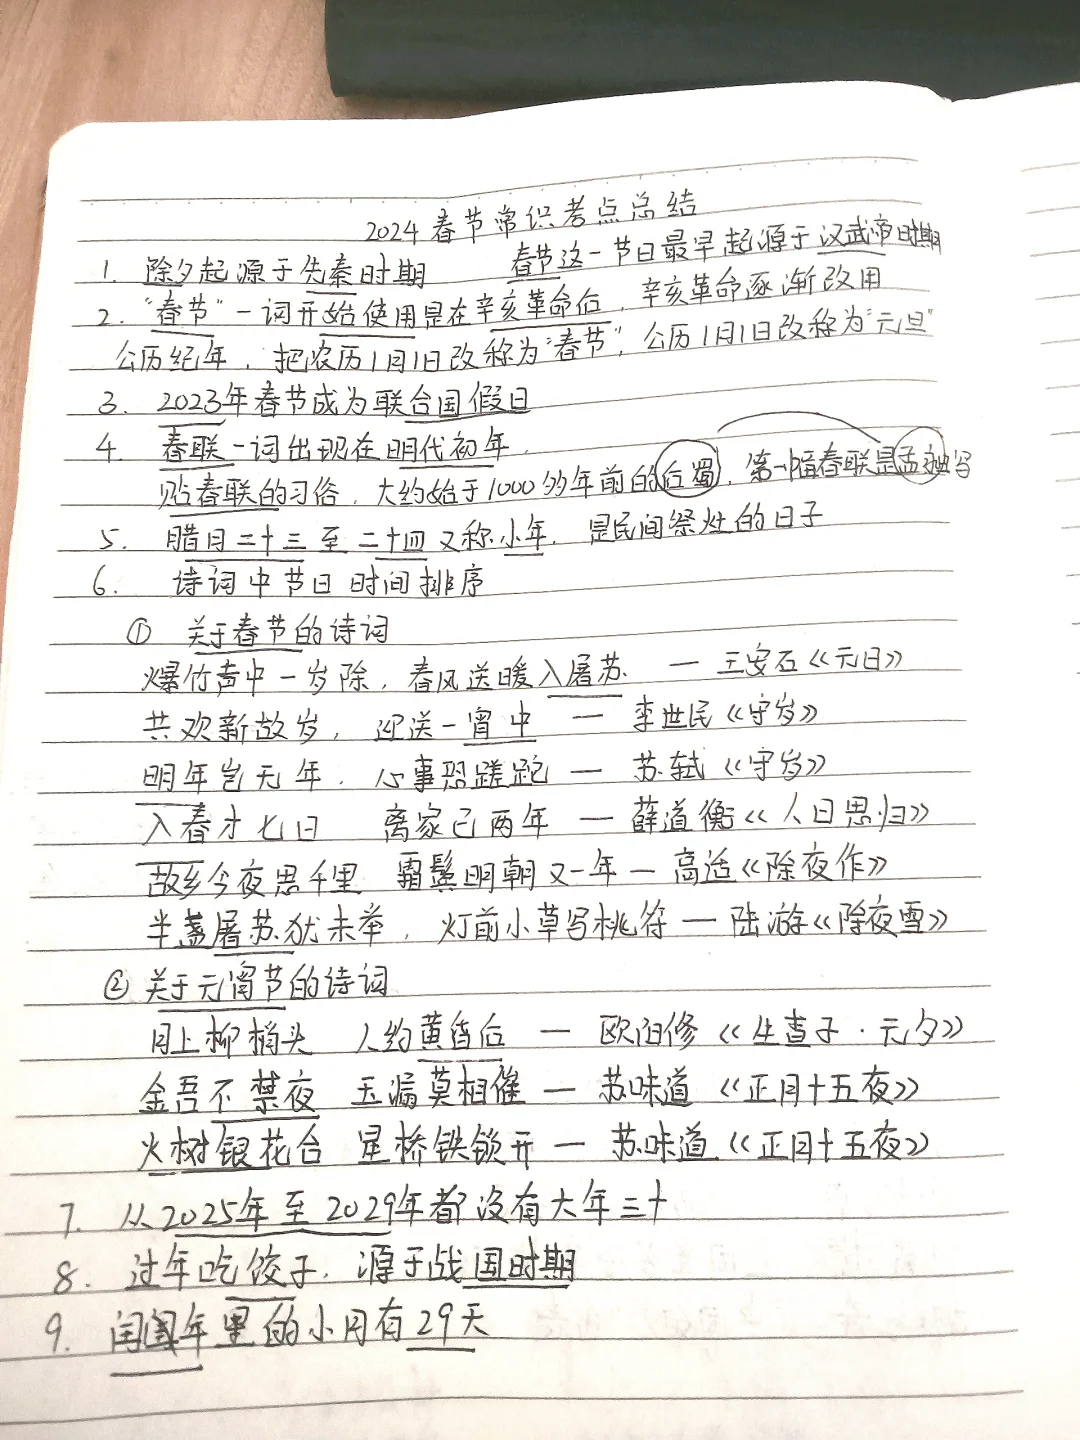 2024春节常识考点总结
1. 除夕起源于先秦时期 春节这一节日最早起源于汉武帝时期
2. “春节”一词开始使用是在辛亥革命后，辛亥革命逐渐改用
公历纪年，把农历1月1日改称为“春节”，公历1月1日改称为“元旦”
3. 2023年春节成为联合国假日
4. 春联一词出现在明代初年，
贴春联的习俗，大约始于1000多年前的后蜀，第一幅春联是孟昶写
5. 腊月二十三至二十四又称小年，是民间祭灶的日子
6. 诗词中节日时间排序
① 关于春节的诗词
爆竹声中一岁除，春风送暖入屠苏 — 王安石《元日》
共欢新故岁，迎送一宵中 — 李世民《守岁》
明年岂无年，心事恐蹉跎 — 苏轼《守岁》
入春才七日 离家已两年 — 薛道衡《人日思归》
故乡今夜思千里 霜鬓明朝又一年 — 高适《除夜作》
半盏屠苏犹未举，灯前小草写桃符 — 陆游《除夜雪》
② 关于元宵节的诗词
月上柳梢头 人约黄昏后 — 欧阳修《生查子·元夕》
金吾不禁夜 玉漏莫相催 — 苏味道《正月十五夜》
火树银花台 星桥铁锁开 — 苏味道《正月十五夜》
7. 从2025年至2029年都没有大年三十
8. 过年吃饺子，源于战国时期
9. 闰年里的小月有29天